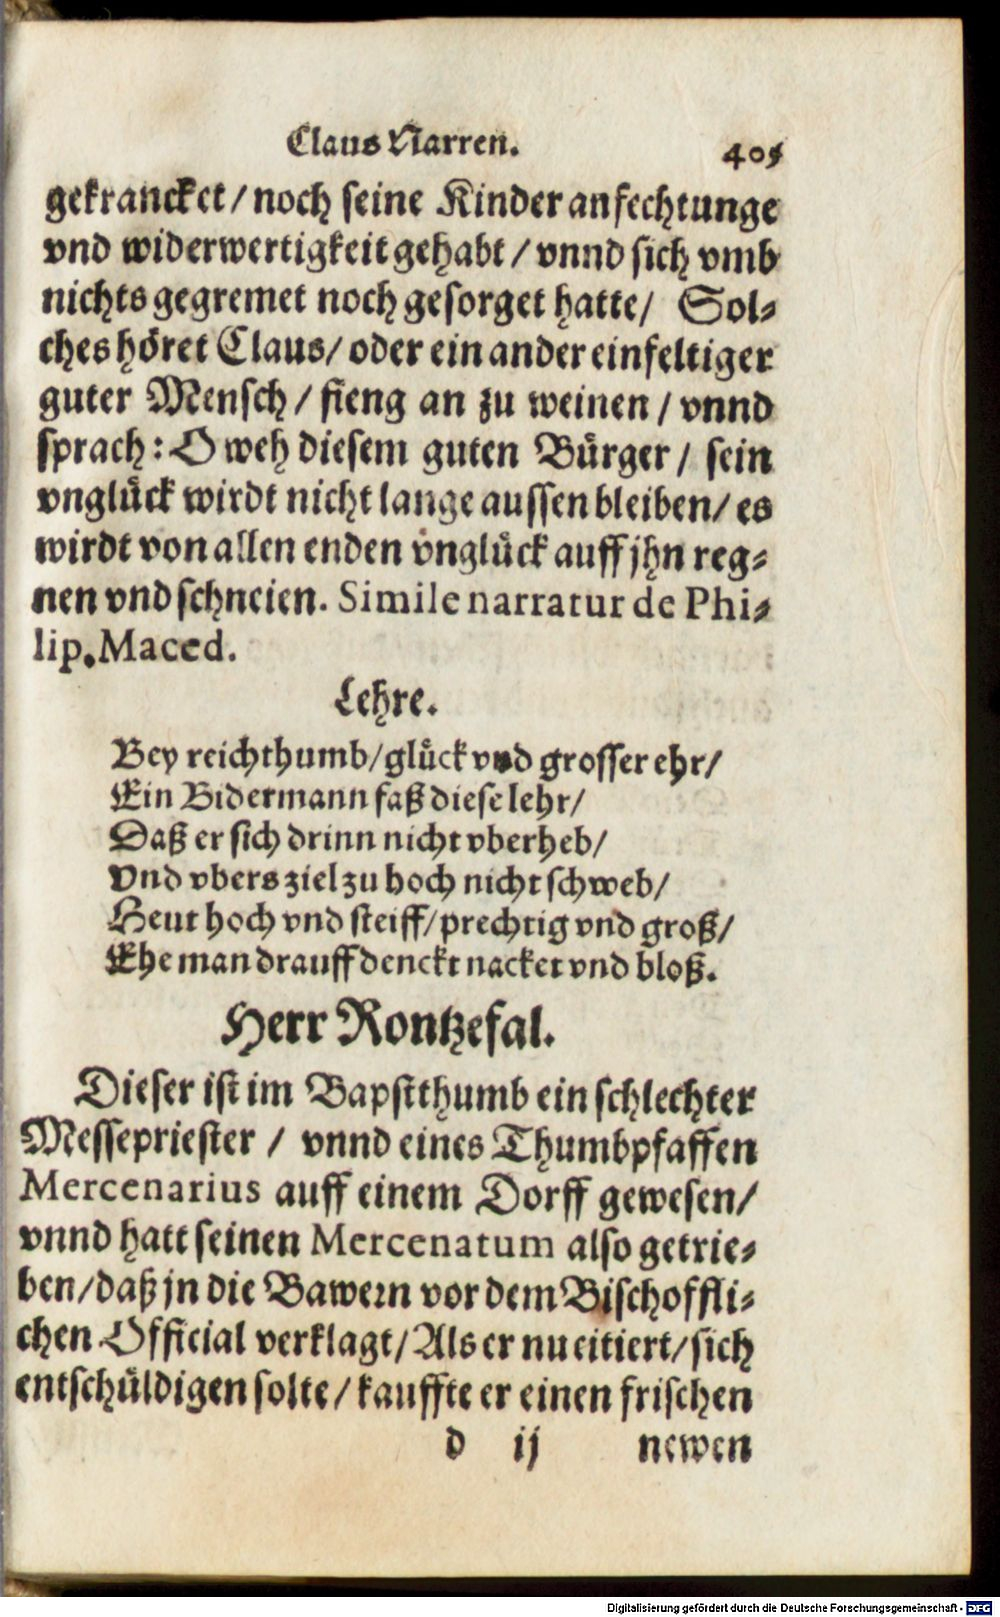 Claus Narren. 405
gekrancket / noch seine Kinder anfechtunge
vnd widerwertigkeit gehabt / vnnd sich vmb
nichts gegremet noch gesorget hatte / Sol⸗
ches höret Claus / oder ein ander einfeltiger
guter Mensch / fieng an zu weinen / vnnd
sprach : O weh diesem guten Bürger / sein
vnglück wirdt nicht lange aussen bleiben / es
wirdt von allen enden vnglück auff jhn reg⸗
nen vnd schneien. Simile narratur de Phi⸗
lip. Maced.
Lehre.
Bey reichthumb / glück vnd grosser ehr /
Ein Bidermann faß diese lehr /
Daß er sich drinn nicht vberheb /
Vnd vbers ziel zu hoch nicht schweb /
Heut hoch vnd steiff / prechtig vnd groß /
Ehe man drauff denckt nacket vnd bloß.
Herr Rontzefal.
Dieser ist im Bapstthumb ein schlechter
Messepriester / vnnd eines Thumbpfaffen
Mercenarius auff einem Dorff gewesen /
vnnd hatt seinen Mercenatum also getrie⸗
ben / daß jn die Bawern vor dem Bischoffli⸗
chen Official verklagt / Als er nu citiert / sich
entschüldigen solte / kauffte er einen frischen
d ij newen
Digitalisierung gefördert durch die Deutsche Forschungsgemeinschaft - DFG